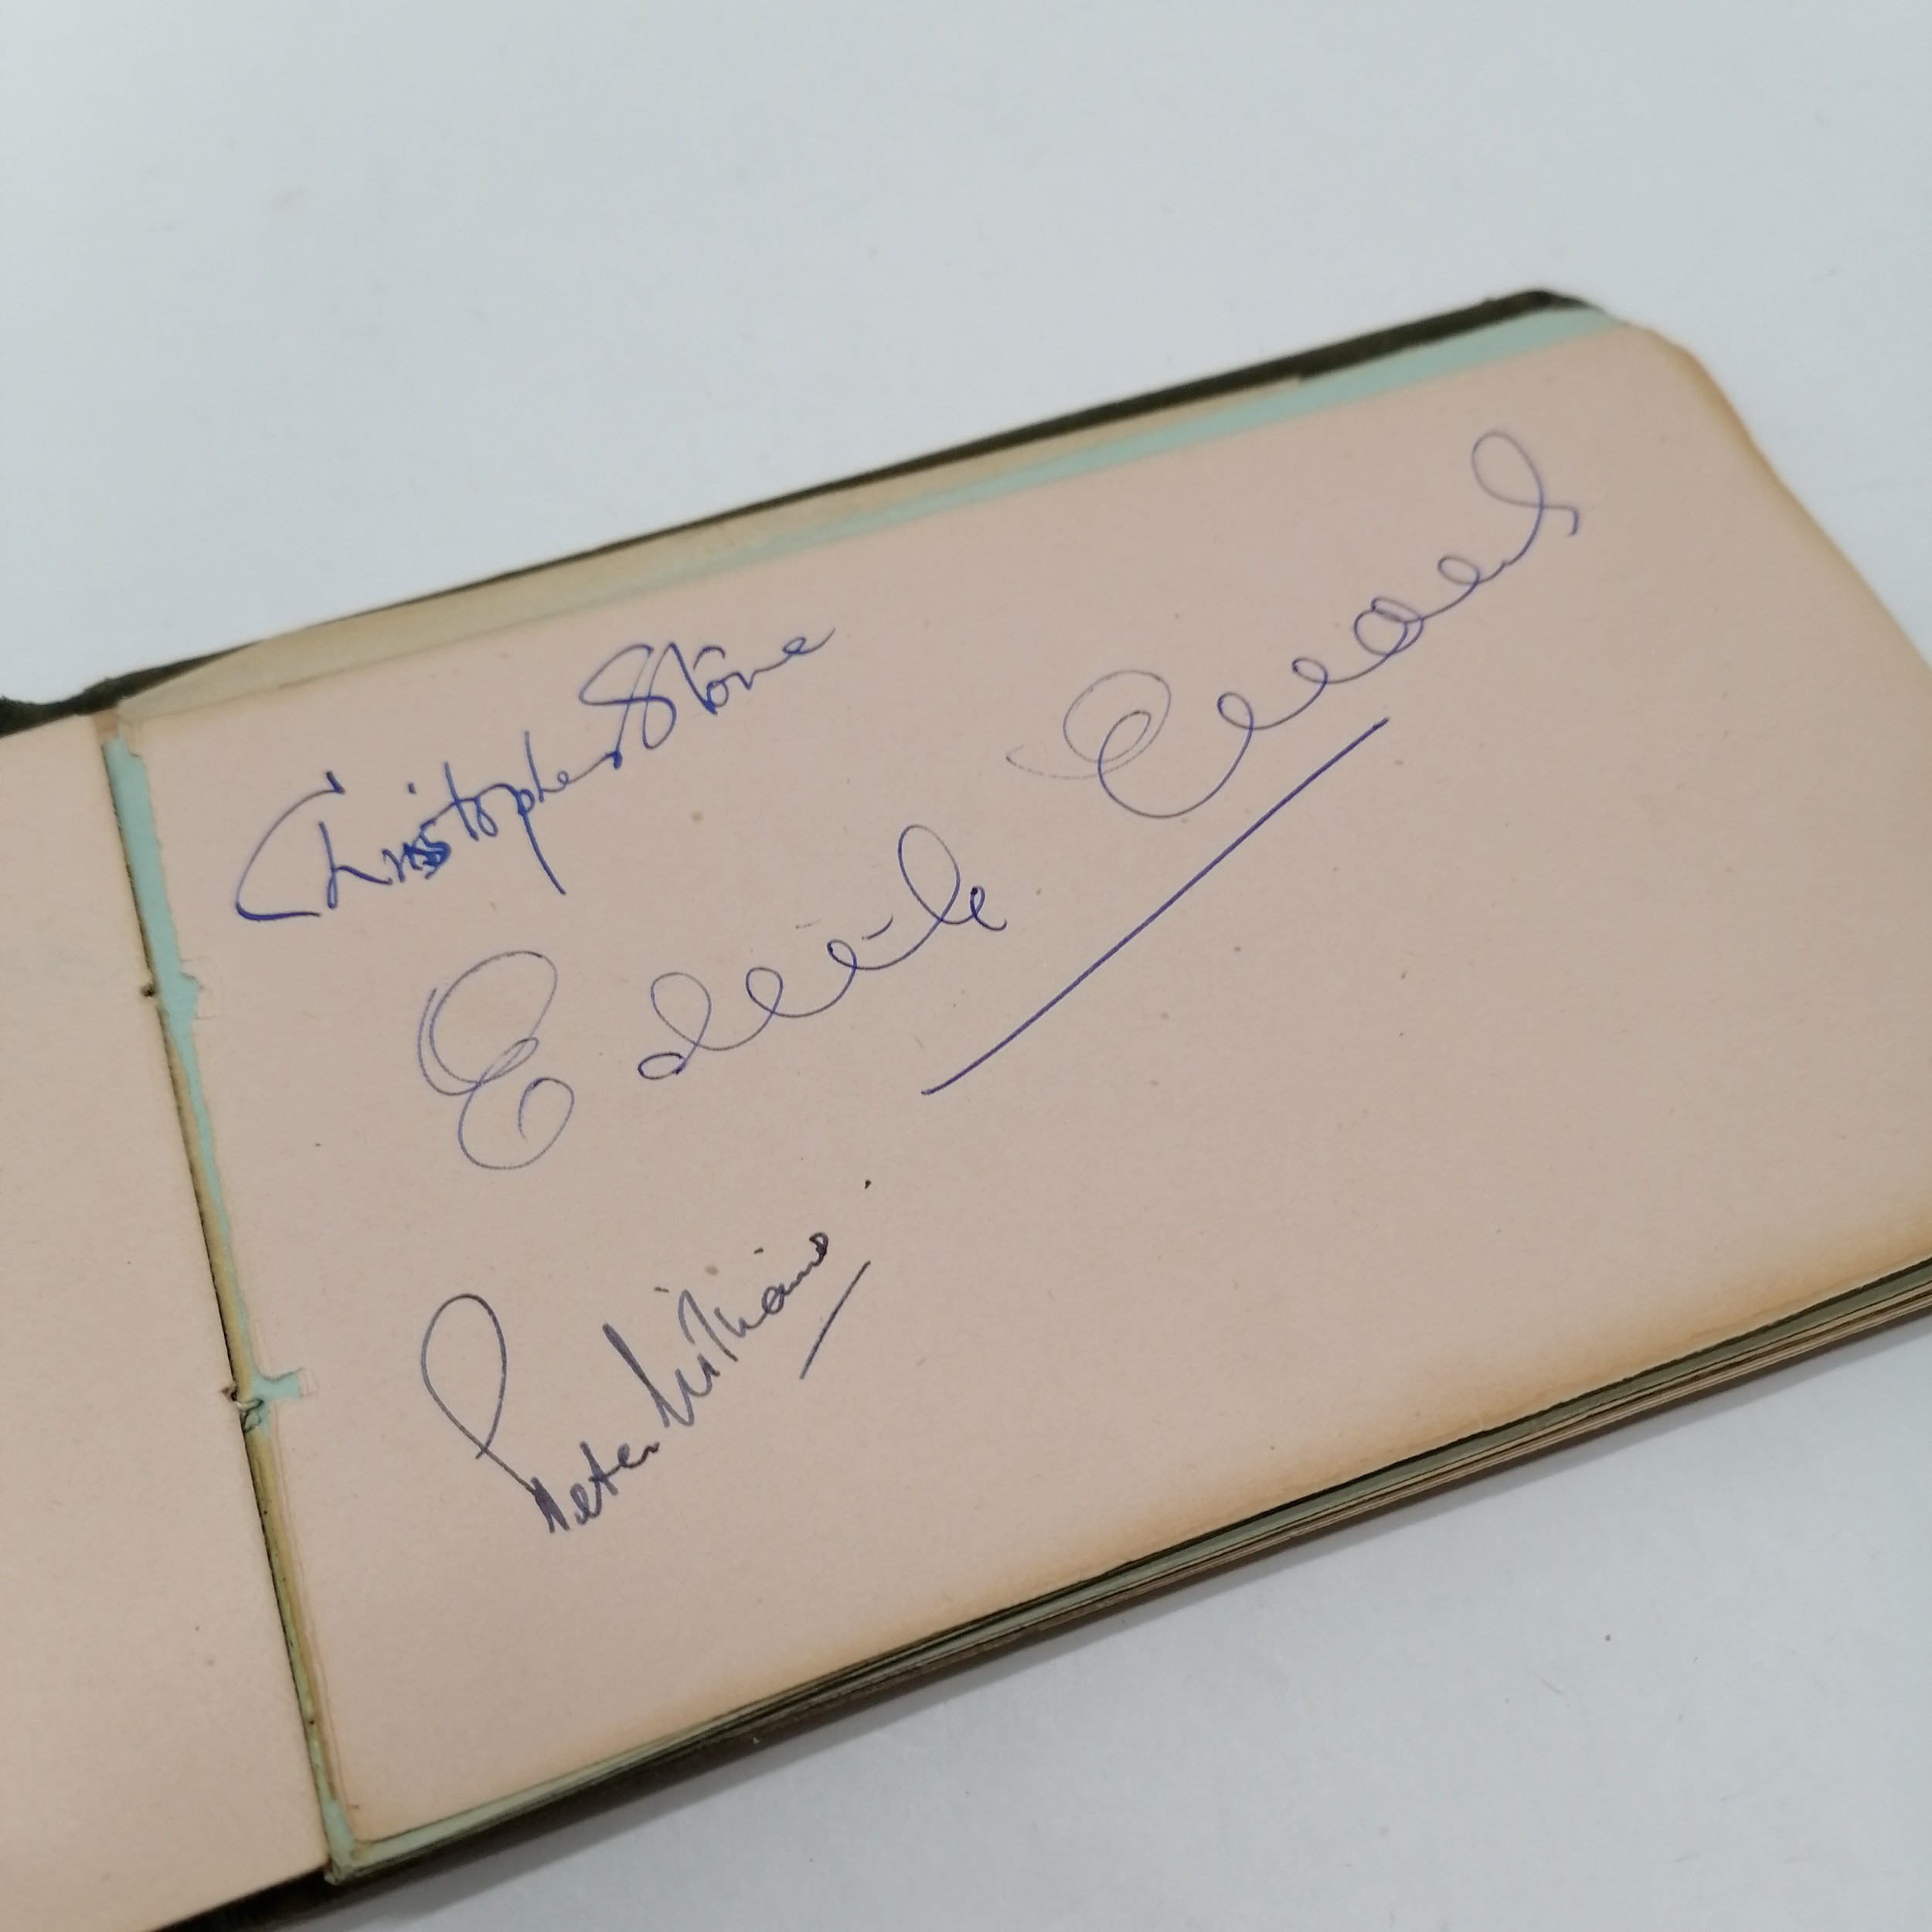 Christopher Stone
Edith Evans
Peter Williams